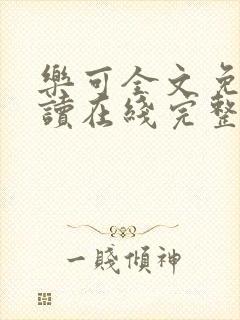 樂可全文免
讀在綫完整
一賤傾神